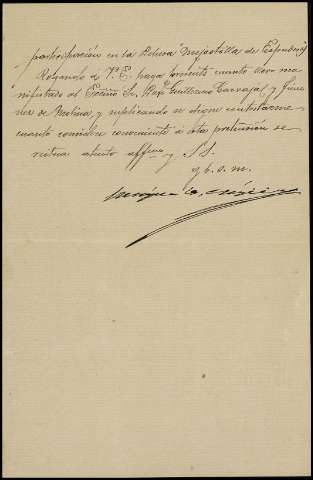 participación en la Dehesa Mejostilla de
Rogando á V. E. haga presente cuanto dejo ma
nifestado al Excmo Sr. Don Guillermo Carvajal y Jime
nez de Molina, y suplicando se digne contestarme
cuanto considere conveniente á esta pretensión se
reitera atento affmo y S. S.
q. b. s. m.